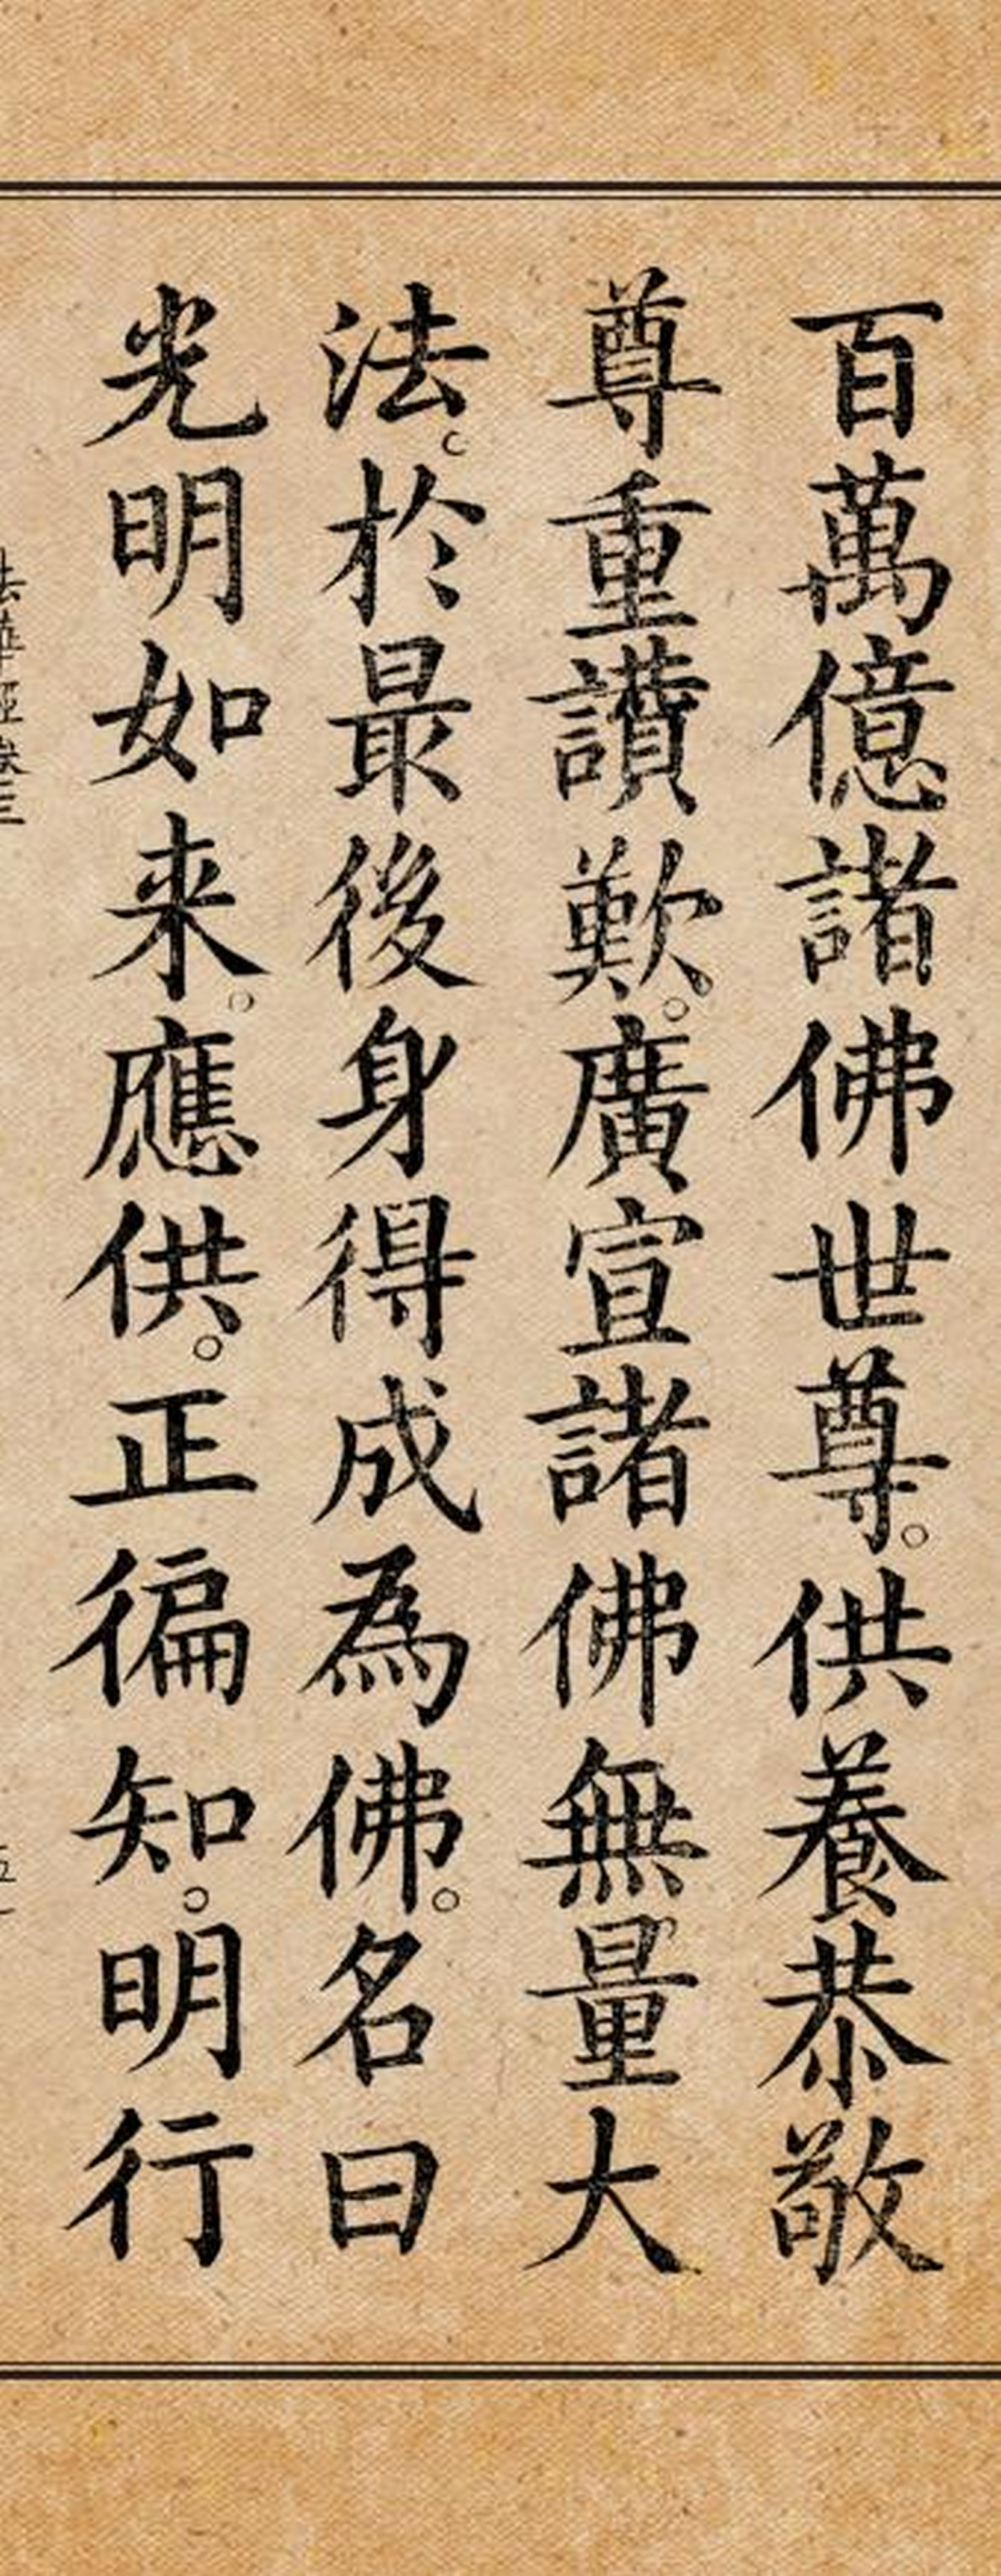 百萬億諸佛世尊。供養恭敬
尊重讚歎。廣宣諸佛無量大
法。於最後身得成為佛。名曰
光明如来。應供。正徧知。明行
法華經卷三